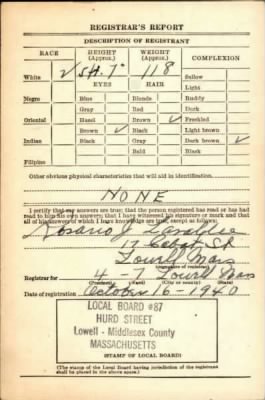 REGISTRAR'S REPORT
DESCRIPTION OF REGISTRANT
RACE HEIGHT (Approx.) WEIGHT (Approx.) COMPLEXION
White ✓ 5ft. 7" 118 Sallow
Light
EYES HAIR
Negro Blue Blonde Ruddy
Gray Red Dark
Oriental Hazel Brown ✓ Freckled
Brown ✓ Black Light brown
Indian Black Gray Dark brown ✓
Bald Black
Filipino
Other obvious physical characteristics that will aid in identification
NONE
I certify that my answers are true; that the person registered has read or has had
read to him his own answers; that I have witnessed his signature or mark and that
all of his answers of which I have knowledge are true, except as follows:
Rosario J.
17 Cabot St
Lowell Mass
(Signature of registrar)
Registrar for 4 - 7 Lowell Mass
(Precinct) (Ward) (City or county) (State)
Date of registration October 16 - 1940
LOCAL BOARD #87
HURD STREET
Lowell - Middlesex County
MASSACHUSETTS
(STAMP OF LOCAL BOARD)
(The stamp of the Local Board having jurisdiction of the registrant
shall be placed in the above space.)